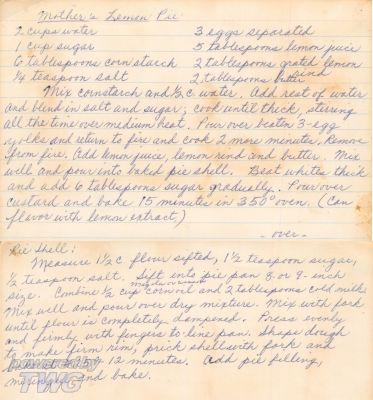 Mother's Lemon Pie
2 cups water
1 cup sugar
6 tablespoons corn starch
1/4 teaspoon salt
3 eggs separated
5 tablespoons lemon juice
2 tablespoons grated lemon rind
2 tablespoons butter
Mix cornstarch and 1/2 c water. Add rest of water
and blend in salt and sugar; cook until thick, stirring
all the time over medium heat. Pour over beaten 3-egg
yolks and return to fire and cook 2 more minutes. Remove
from fire. Add lemon juice, lemon rind and butter. Mix
well and pour into baked pie shell. Beat whites thick
and add 6 tablespoons sugar gradually. Pour over
custard and bake 15 minutes in 350° oven. (Can
flavor with lemon extract.)
-over-
Pie Shell:
Measure 1 1/2 c flour sifted, 1 1/2 teaspoon sugar,
1/2 teaspoon salt. Sift into pie pan 8 or 9-inch
size. Combine 1/2 cup corn oil and 2 tablespoons cold milk.
Mix well and pour over dry mixture. Mix with fork
until flour is completely dampened. Press evenly
and firmly with fingers to line pan. Shape dough
to make firm rim, prick shell with fork and
12 minutes. Add pie filling,
meringue and bake.
TWG